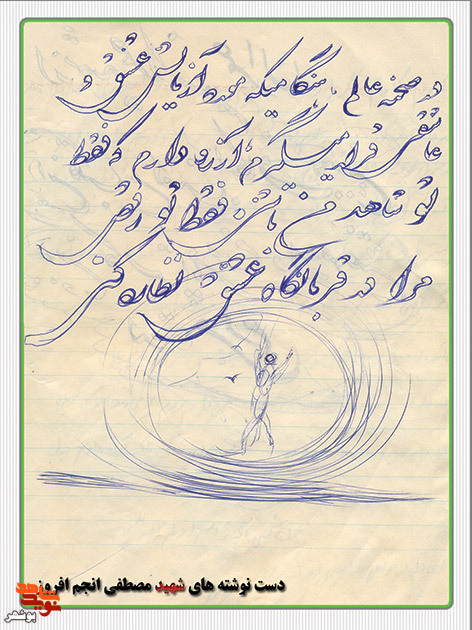 در صحنه عالم، هنگامیکه مورد آزمایش عشق و
عاشقی قرار میگیرم، آرزو دارم که فقط
تو شاهد من باشی فقط تو رقص
مرا در قربانگاه عشق نظاره کنی
دست نوشته های شهید مصطفی انجم افروز
نوید شاهد
بوشهر